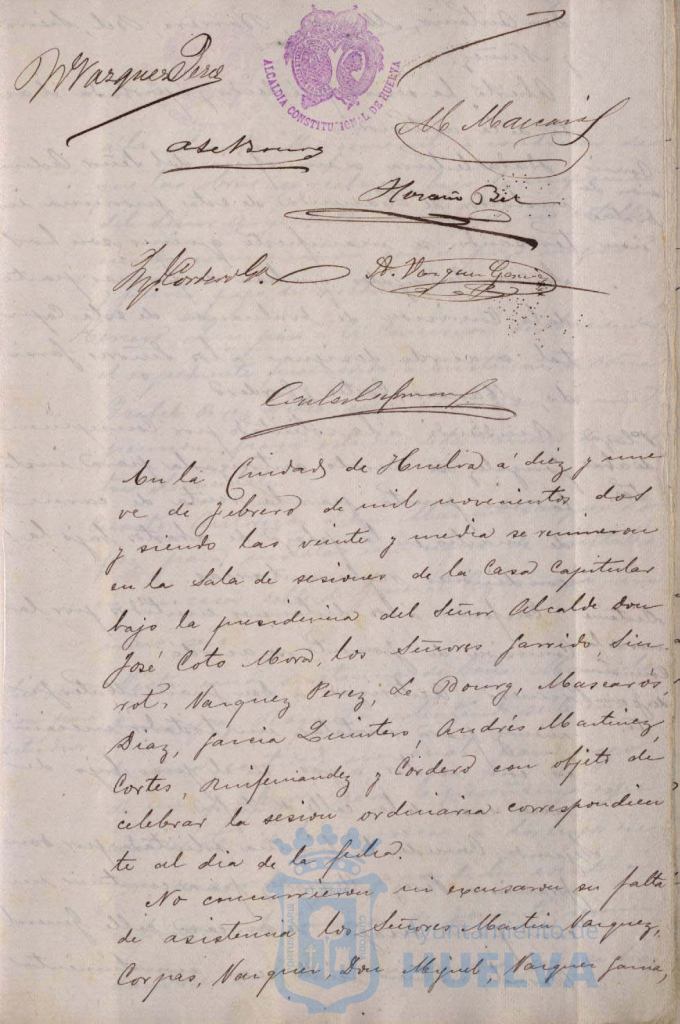 M Vazquez Perez
ALCALDIA CONSTITUCIONAL DE HUELVA
M. Mascarós
A Le Bourg
Horacio Bel
A. Vazquez Garcia
En la Ciudad de Huelva á diez y nue
ve de febrero de mil novecientos dos
y siendo las veinte y media se reunieron
en la Sala de sesiones de la Casa Capitular
bajo la presidencia del Señor Alcalde Don
José Coto Mora, los Señores Garrido, Siu-
rot, Vazquez Perez, Le-Bourg, Mascarós,
Diaz, Garcia Quintero, Andrés Martinez,
Cortes, Ruifernandez y Cordero con objeto de
celebrar la sesion ordinaria correspondien
te al dia de la fecha.
No concurrieron ni excusaron su falta
de asistencia los Señores Martin Vazquez,
Corpas, Vazquez, Don Miguel, Vazquez Garcia,
Ayuntamiento de
HUELVA